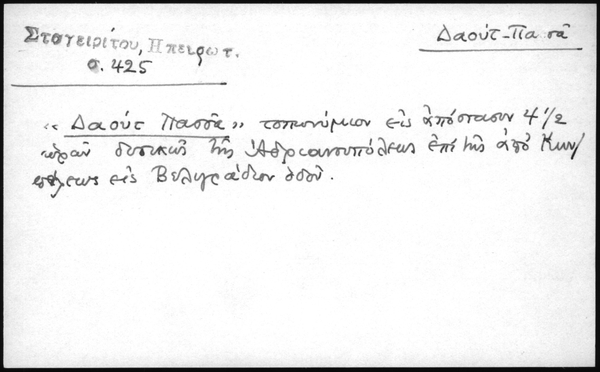 Σταγειρίτου, Ηπειρωτ.
σ. 425
Δαούτ-Πασᾶ
«Δαούτ Πασσᾶ» τοπωνύμιον εἰς ἀπόστασιν 4 1/2
ὡρῶν δυτικῶς τῆς Ἀδριανουπόλεως ἐπὶ τῆς ἀπὸ Κων/
πόλεως εἰς Βελιγράδιον ὁδοῦ.